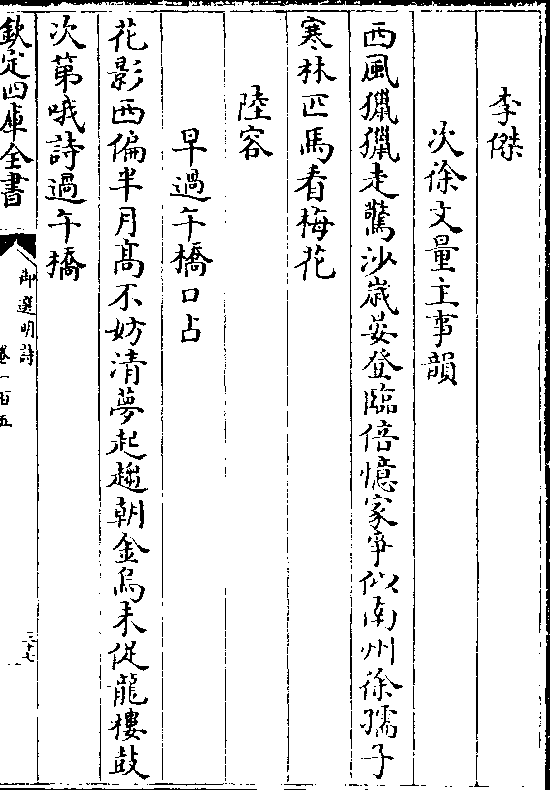 李傑
次徐文量主事韻
西風獵獵走驚沙歲晏登臨倍憶家爭似南州徐孺子
寒林匹馬看梅花
陸容
早過午橋口占
花影西偏半月高不妨清夢起趨朝金烏未促龍樓鼓
次第哦詩過午橋
欽定四庫全書
御選明詩
卷一百五
三十七